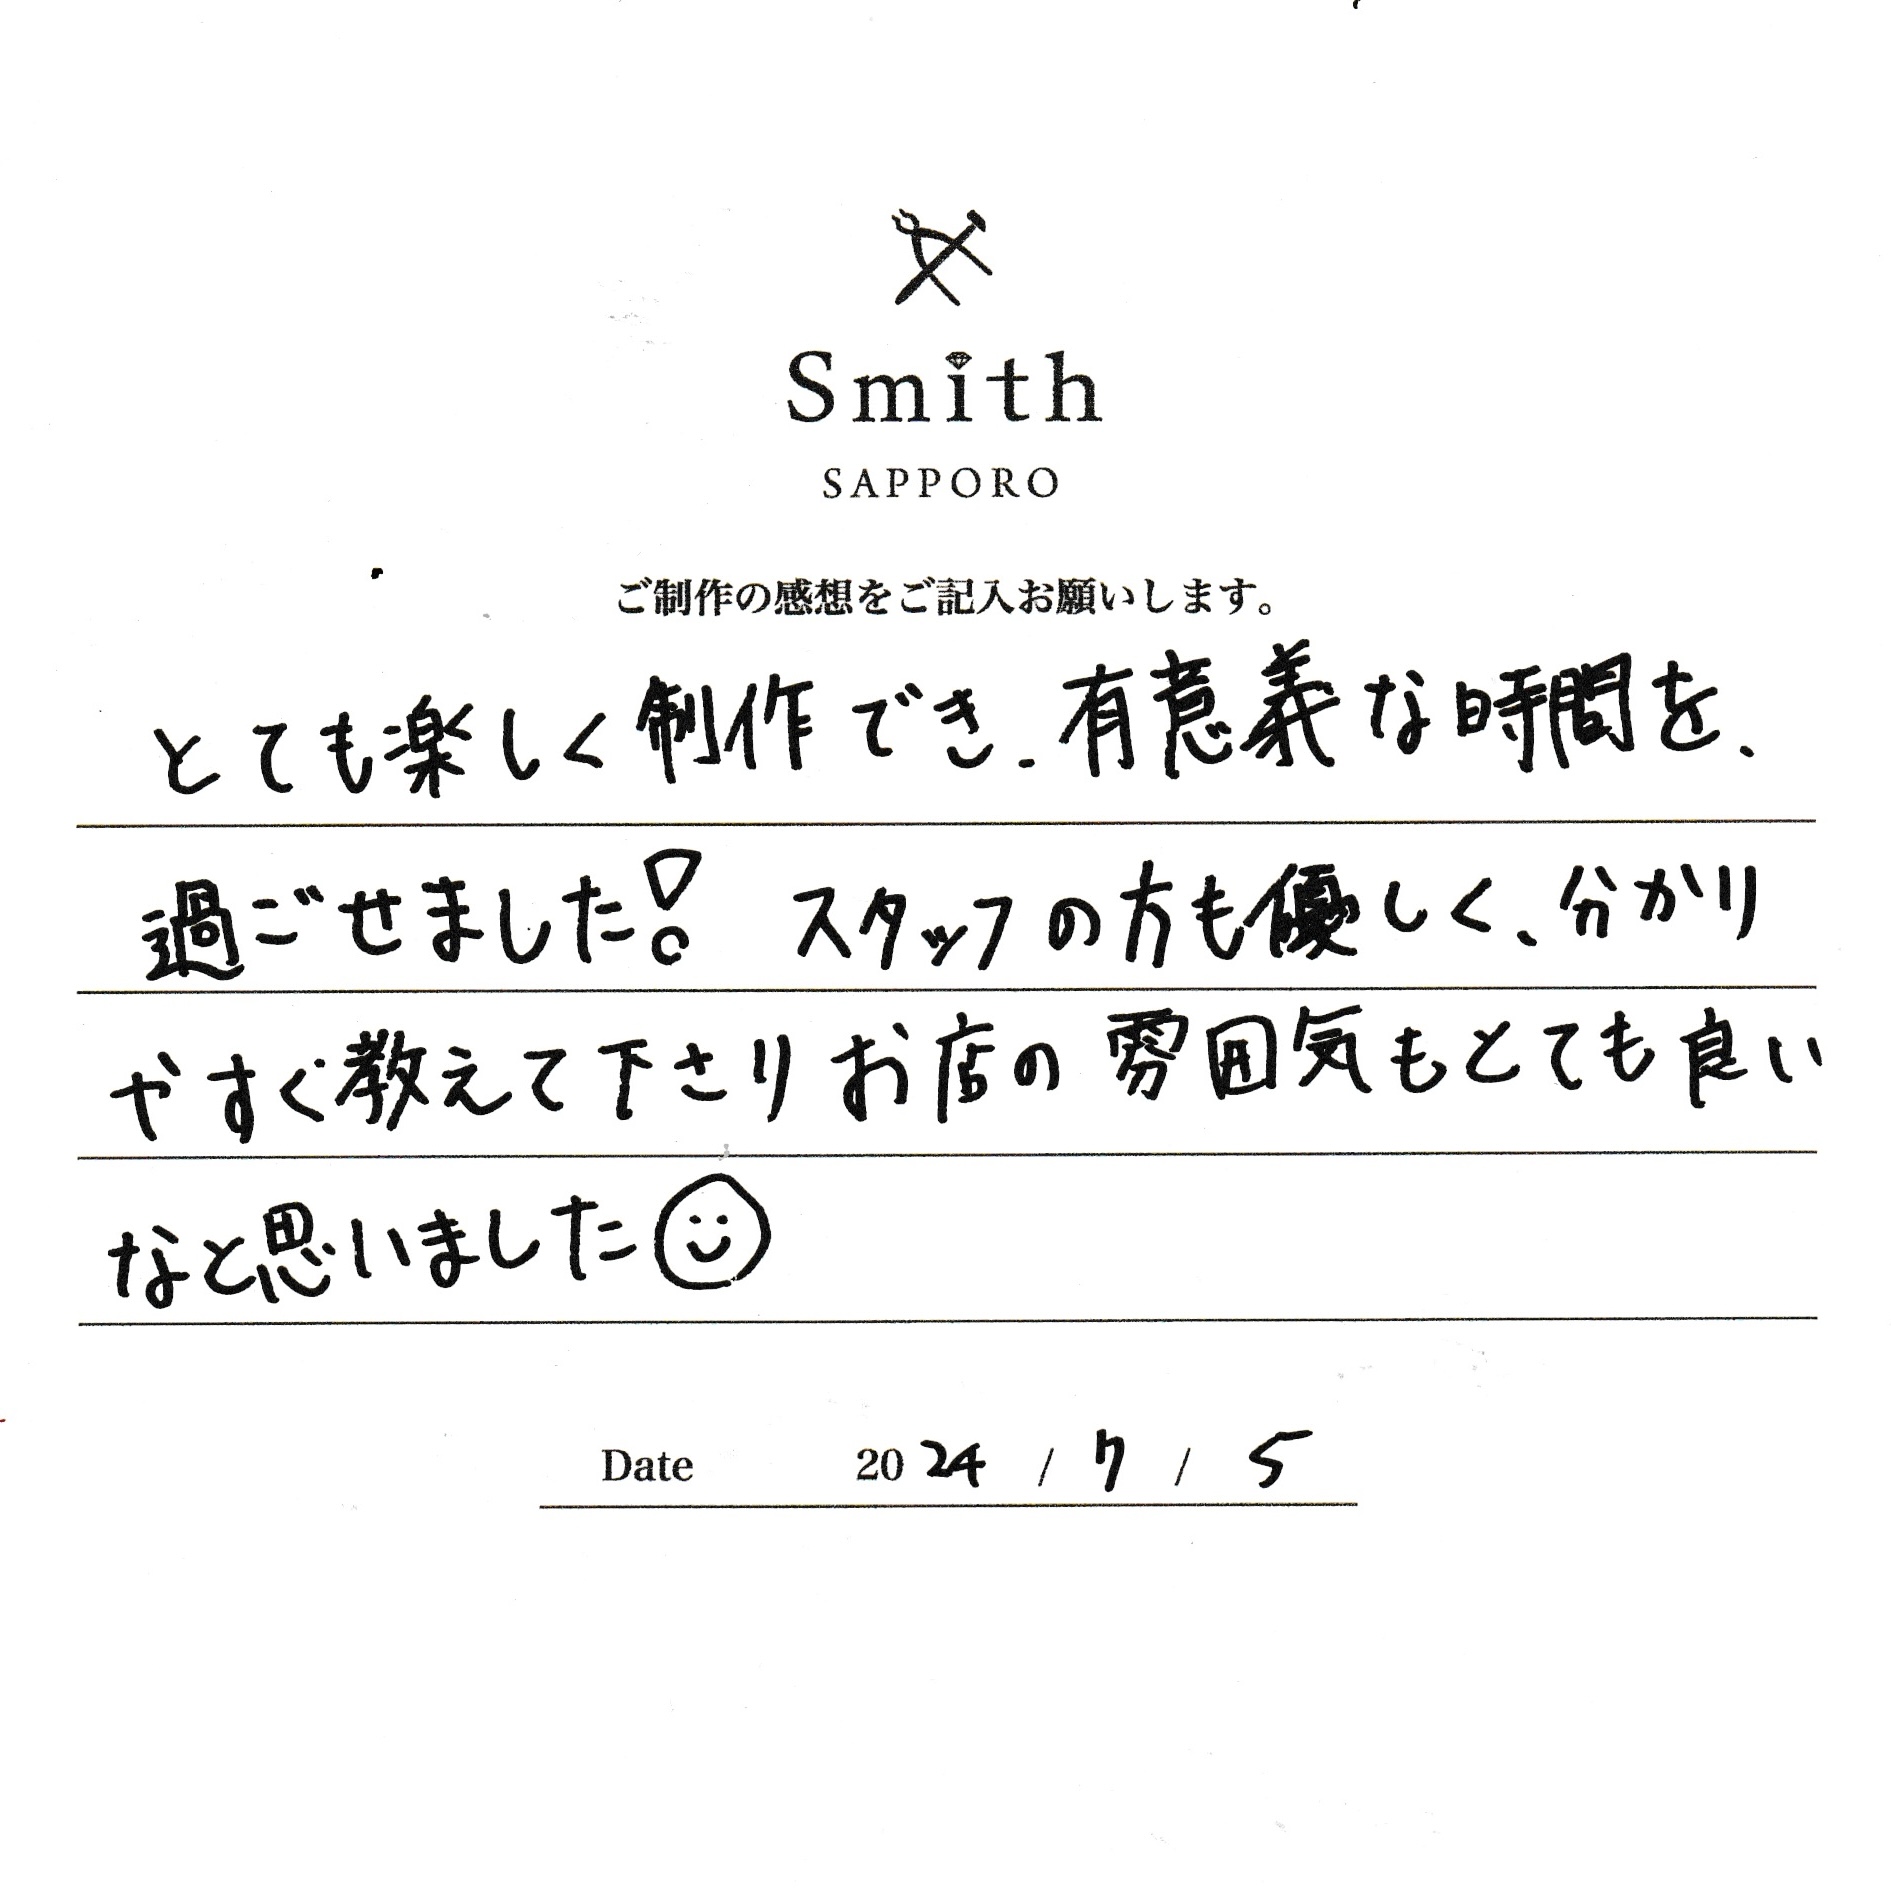 Smith
SAPPORO
ご制作の感想をご記入お願いします。
とても楽しく制作でき、有意義な時間を、
過ごせました! スタッフの方も優しく、分かり
やすぐ教えて下さりお店の雰囲気もとても良い
なと思いました☺
Date 2024 / 7 / 5